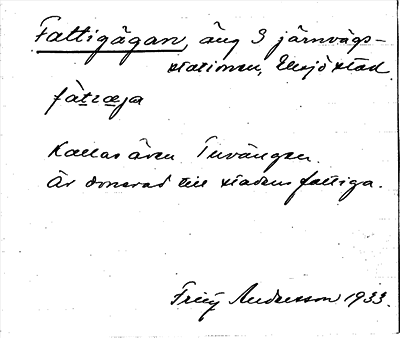 Fattigägan, äng S järnvägs-
stationen, Eksjö stad.
Kallas även Tuvängen.
Är donerad till stadens fattiga.
Andersson 1933.